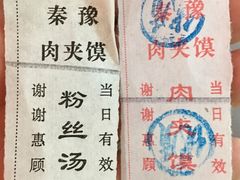 秦豫
肉夹馍
粉丝汤
当日有效
谢谢惠顾
秦豫
肉夹馍
肉夹馍
当日有效
谢谢惠顾